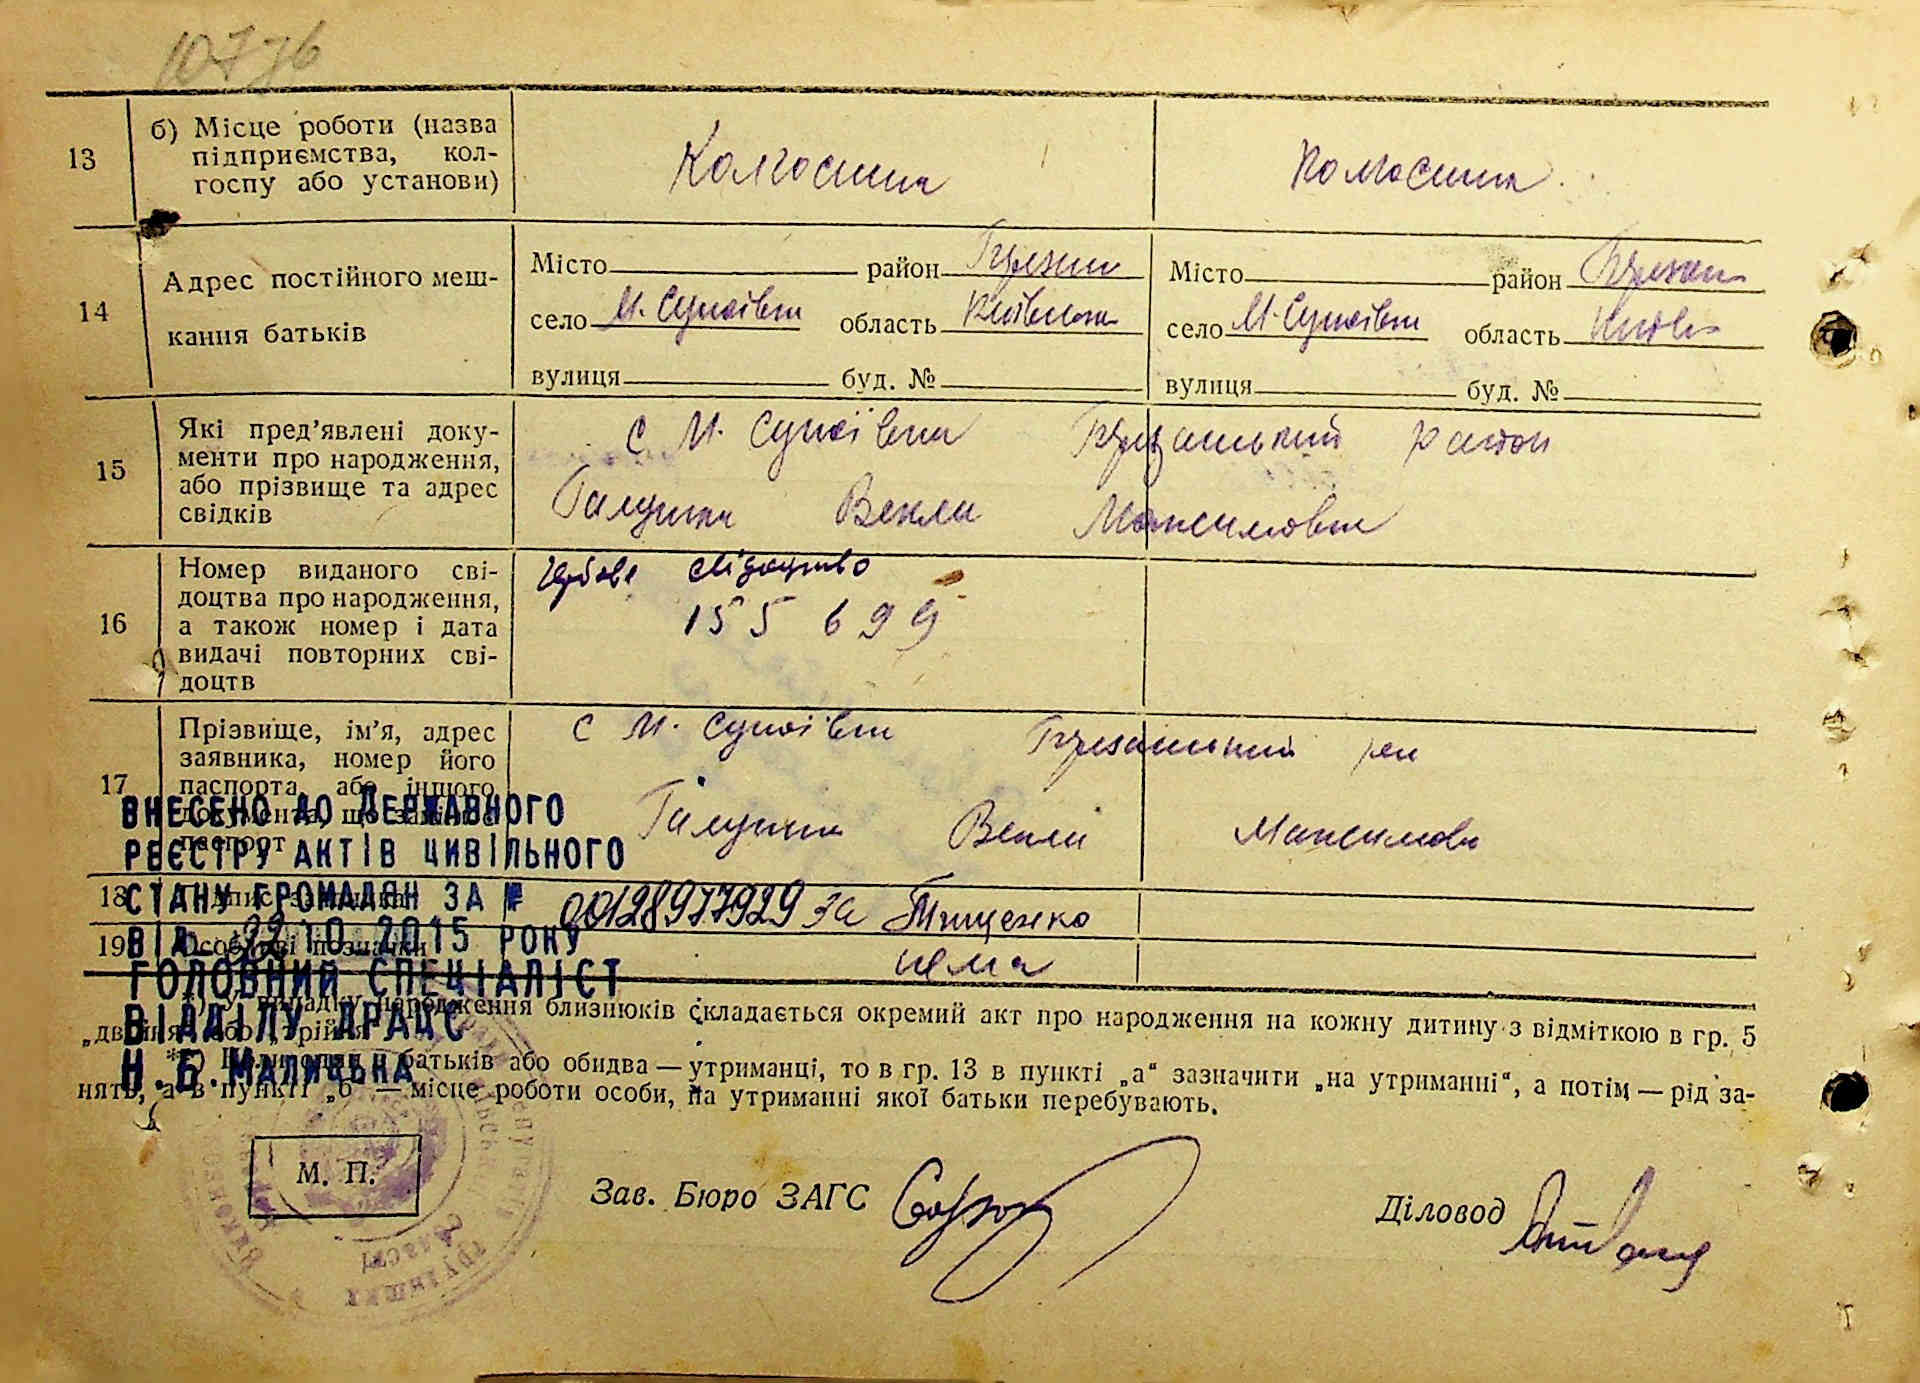 13
б) Місце роботи (назва
підприємства, кол-
госпу або установи)
Колгоспник
Колгоспник
14
Адрес постійного меш-
кання батьків
Місто район
село М. Супоївка область Київська
вулиця буд. №
Місто район
село М. Супоївка область Київ
вулиця буд. №
15
Які пред’явлені доку-
менти про народження,
або прізвище та адрес
свідків
с М. Супоївка район
Галушка Векла Максимовна
16
Номер виданого сві-
доцтва про народження,
а також номер і дата
видачі повторних сві-
доцтв
свідоцтво
155699
17
Прізвище, ім’я, адрес
заявника, номер його
паспорта, або іншого
документа, що заміняє
паспорт
с М. Супоївка
Галушка Векла Максимовн
18 Підпис заявника
за Тищенко
19 Особливі позначки
нема
ВНЕСЕНО ДО ДЕРЖАВНОГО
РЕЄСТРУ АКТІВ ЦИВІЛЬНОГО
СТАНУ ГРОМАДЯН ЗА № 00128977929
ВІД 22.10.2015 РОКУ
ГОЛОВНИЙ СПЕЦІАЛІСТ
ВІДДІЛУ ДРАЦС
Н.Б. МАЛИЦЬКА
*) У випадку народження близнюків складається окремий акт про народження на кожну дитину з відміткою в гр. 5
„двійня“ або „трійня“
батьків або обидва — утриманці, то в гр. 13 в пункті „а“ зазначити „на утриманні“, а потім — рід за-
нять, а в пункті „б“ — місце роботи особи, на утриманні якої батьки перебувають.
М. П.
Зав. Бюро ЗАГС
Діловод